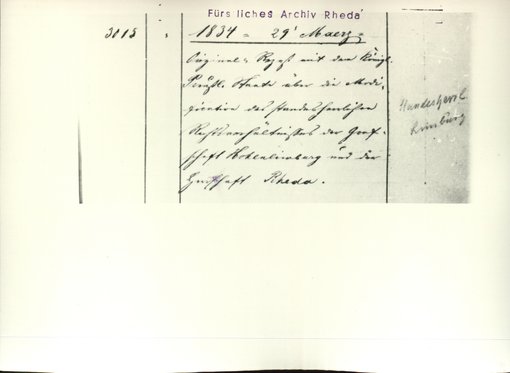 Fürstliches Archiv Rheda
3015
1834 = 29' Maerz =
Original-Rezeß mit dem Königl.
Preuß. Staate über die Modi-
fication des standesherrlichen
Rechtsverhältnisses der Graf-
schaft Hohenlimburg und der
Herrschaft Rheda.
Standesherrl.
Limburg